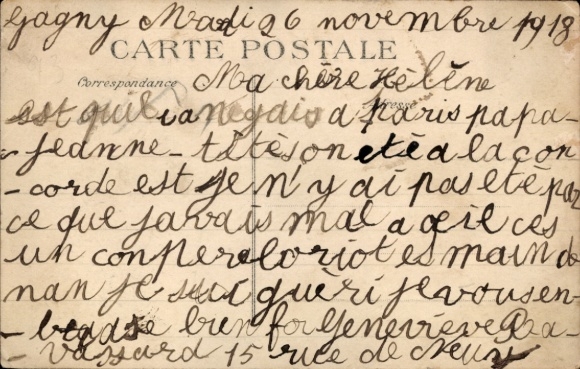 Gagny Mardi 26 novembre 1918
CARTE POSTALE
Correspondance
Ma chère Hélène
est qu'il ia a Paris papa-
- jeanne - titè son etè a la con
- corde est Je n'y ai pas etè par
ce que javais mal a oeil ces
un conpere loriot es main de
nan je suis guèri je vous en-
- brasse bien for Geneviève Ra-
- vassard 15 rue de